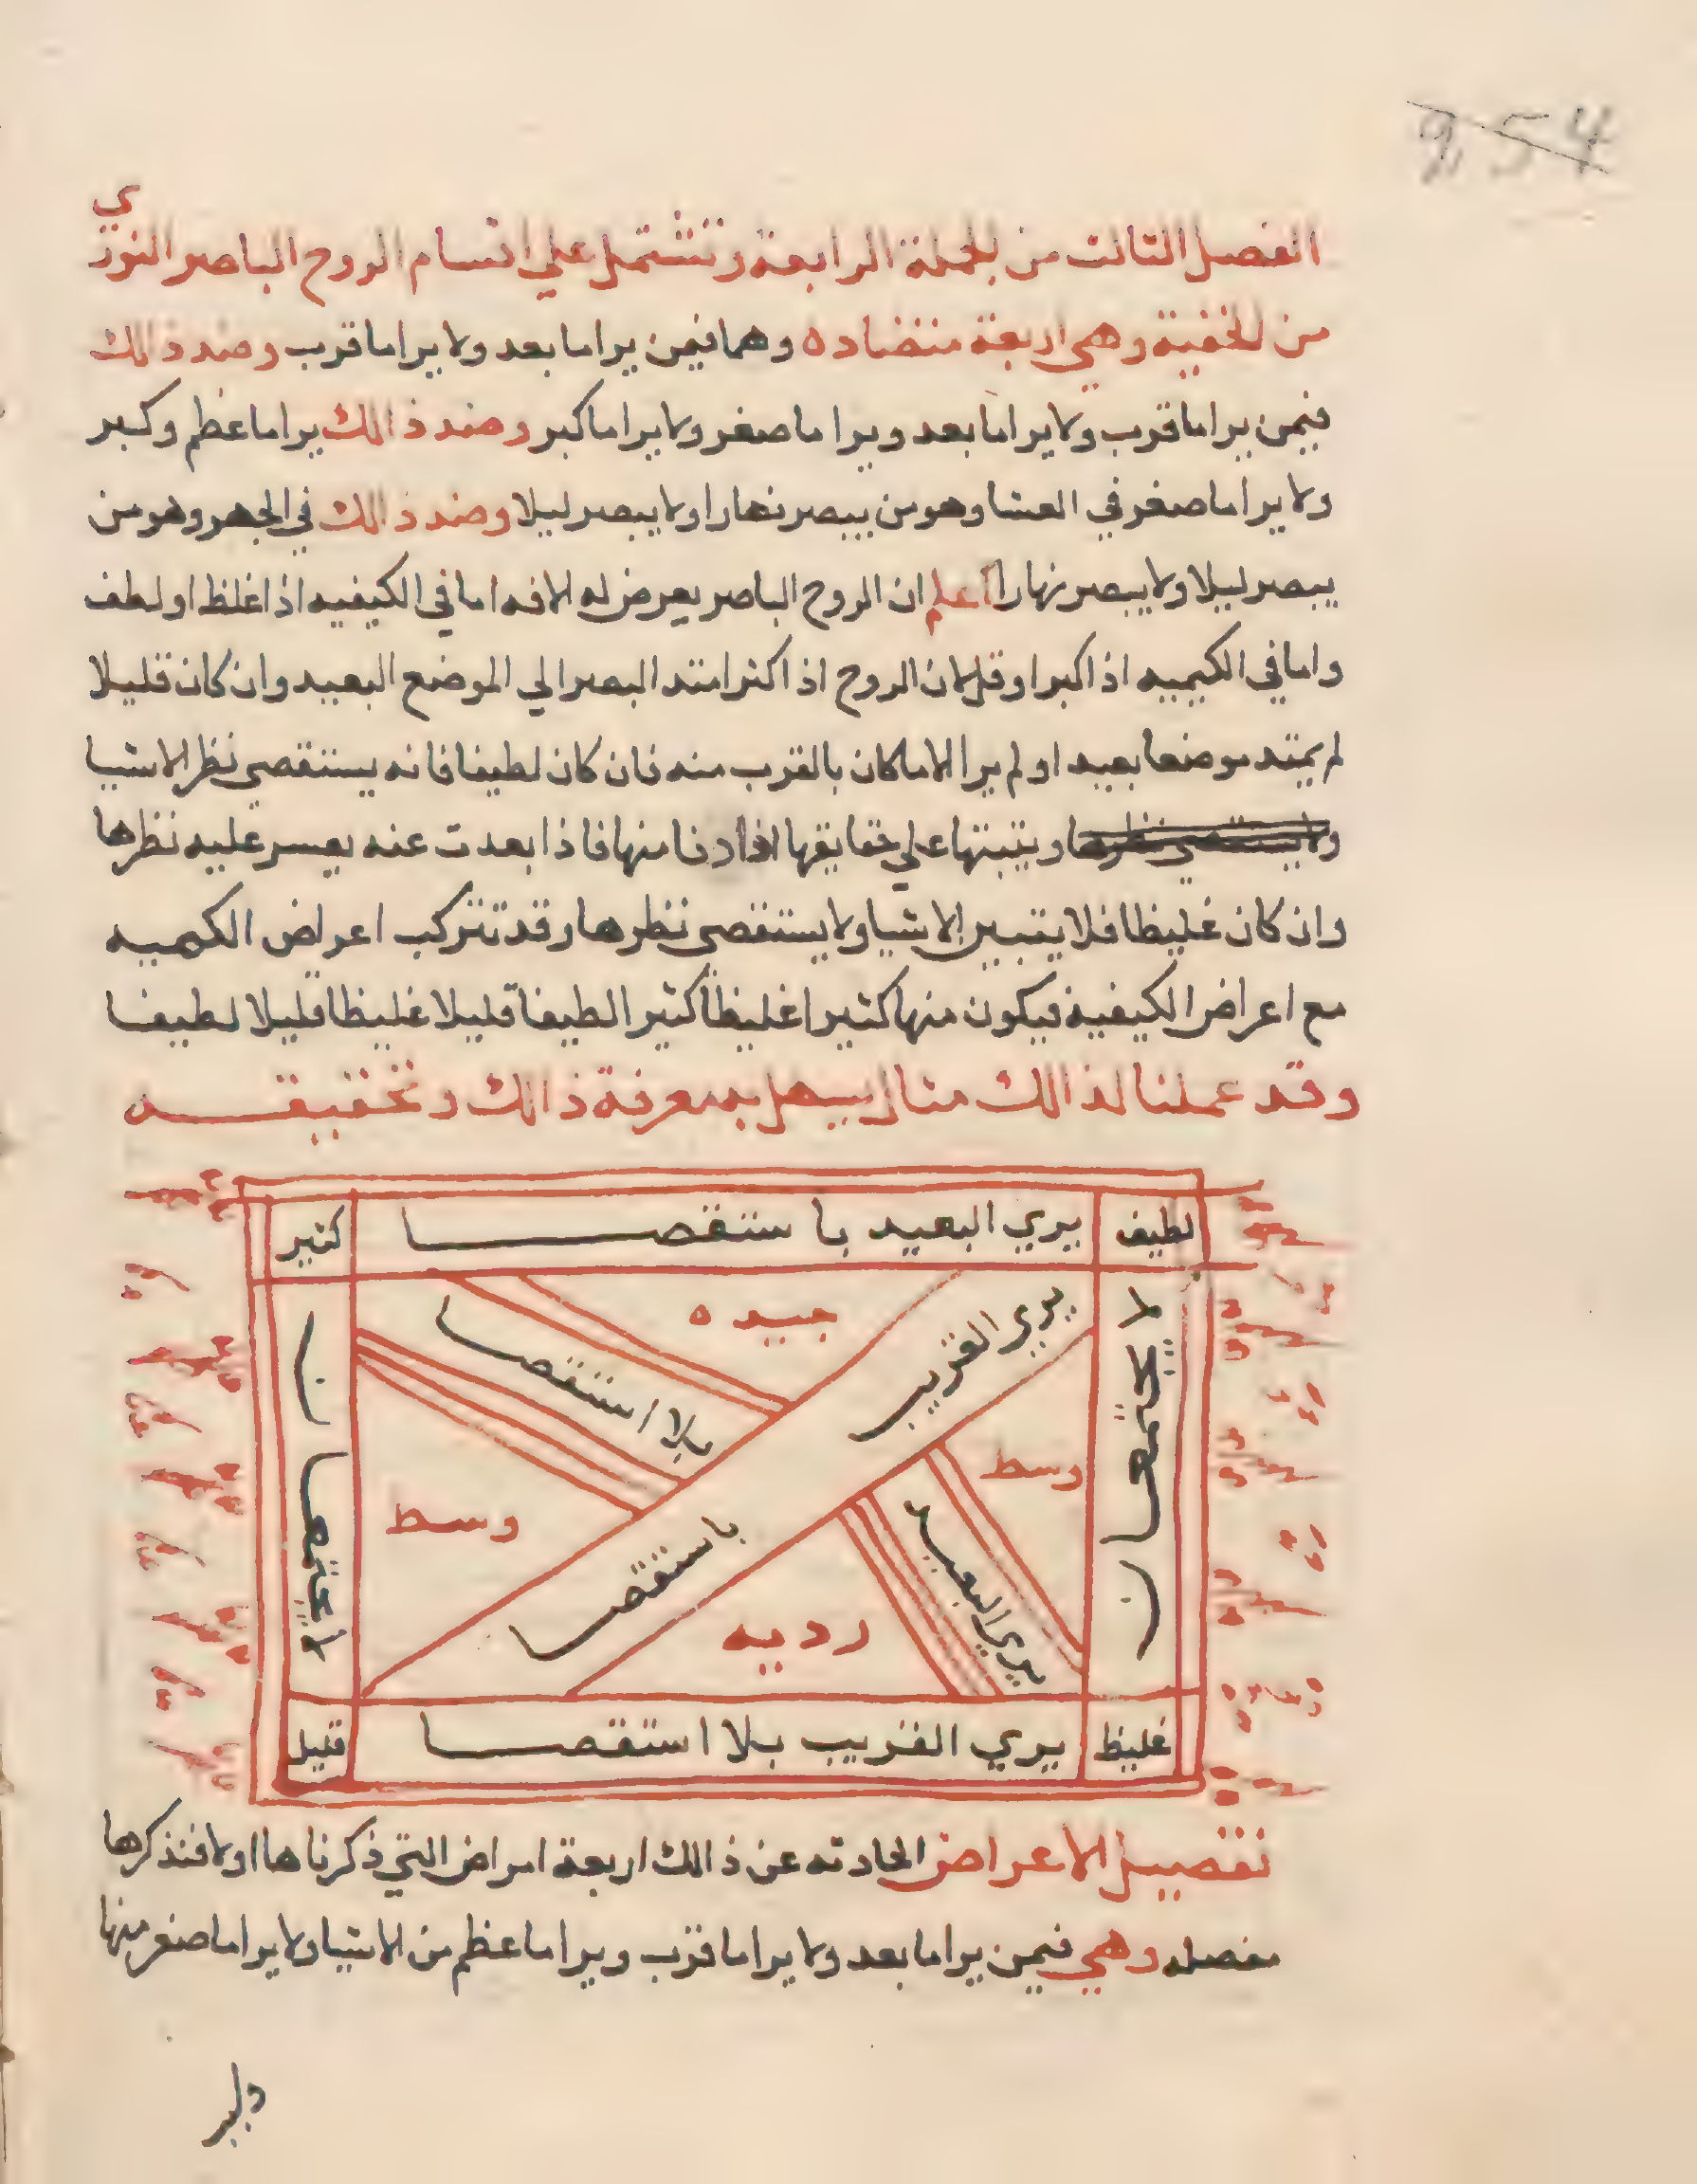 254
الفصل الثالث من الجملة الرابعة وتشتمل علي اقسام الروح الباصر النوري
من الخفية وهي اربعة متضاده وهما فيمن يراما بعد ولا يراما قرب وضد ذالك
فيمن يراما قرب ولا يراما بعد ويرا ما صغر ولا يراما كبر وضد ذالك يراما عظم وكبر
ولا يراما صغر في العشا وهو من يبصر نهارا ولا يبصر ليلا وضد ذالك في الجهر وهو من
يبصر ليلا ولا يبصر نهارا اعلم ان الروح الباصر يعرض له الافه اما في الكيفيه اذا غلظ او لطف
واما في الكميه اذا كبر او قل لان الروح اذا كثر امتد البصر الي الموضع البعيد وان كان قليلا
لم يمتد موضعا بعيد او لم يرا الا ما كان بالقرب منه فان كان لطيفا فانه يستقصي نظر الاشيا
ولا يستقصي نظرها ويتبتها علي حقايقها اذا دنا منها فاذا بعدت عنه يعسر عليه نظرها
وان كان غليظا فلا يتبين الاشيا ولا يستقصي نظرها وقد تتركب اعراض الكميه
مع اعراض الكيفية فيكون منها كثيرا غليظا كثير الطيفا قليلا غليظا قليلا لطيفا
وقد عملنا لذالك مثال يسهل به معرفة ذالك وتحقيقه
لطيف
يري البعيد باستقصا
كثير
لا يجتمعان
يري القريب
باستقصا
جيده
بلا استقصا
وسط
لا يجتمعان
وسط
يري البعيد
رديه
غليظ
يري القريب بلا استقصا
قليل
تفصيل الاعراض الحادثه عن ذالك اربعة امراض التي ذكرناها اولا فنذكرها
مفصله وهي فيمن يراما بعد ولا يراما قرب ويراما عظم من الاشيا ولا يراما صغر منها